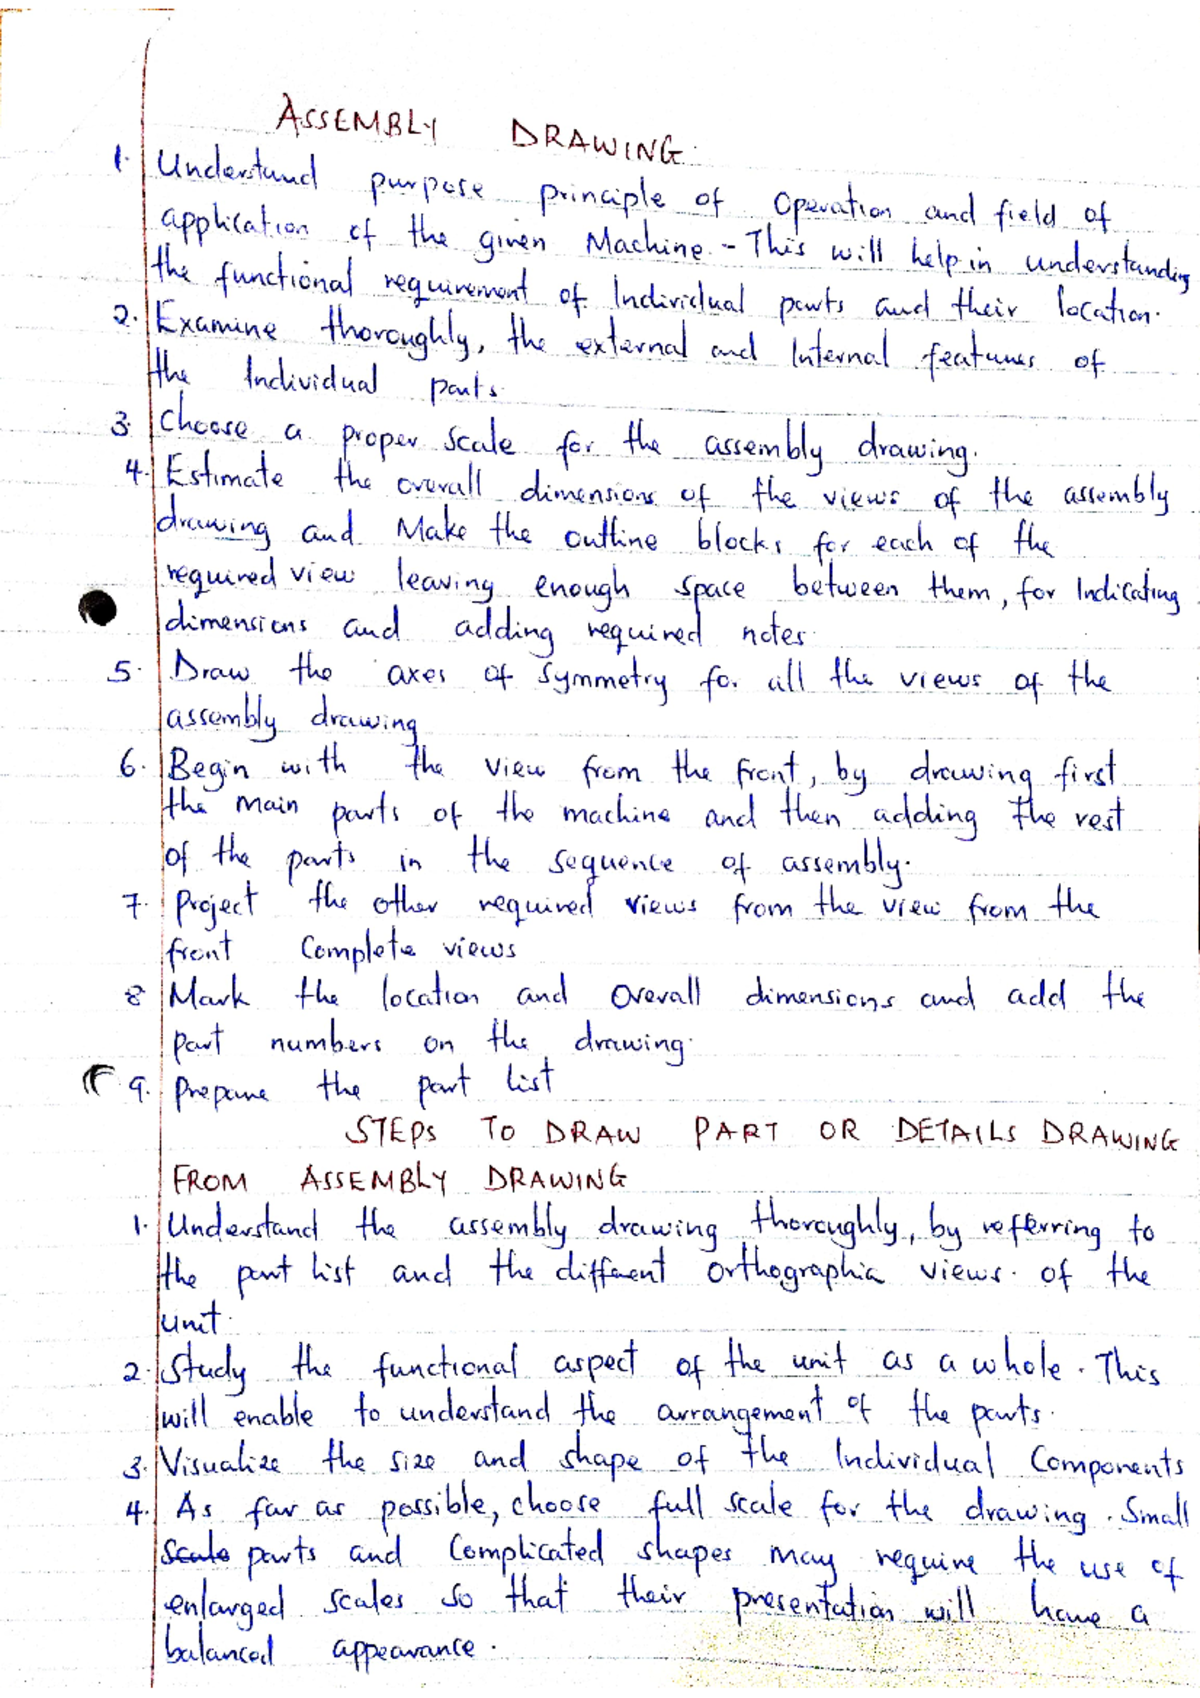 ASSEMBLY DRAWING.
1. Understand purpose principle of Operation and field of
application of the given Machine. - This will help in understanding
the functional requirement of Individual parts and their location.
2. Examine thoroughly, the external and Internal features of
the Individual parts.
3. Choose a proper scale for the assembly drawing.
4. Estimate the overall dimensions of the views of the assembly
drawing and Make the outline blocks for each of the
required view leaving enough space between them, for Indicating
dimensions and adding required notes.
5. Draw the axes of symmetry for all the views of the
assembly drawing
6. Begin with the view from the front, by drawing first
the main parts of the machine and then adding the rest
of the parts in the sequence of assembly.
7. Project the other required views from the view from the
front Complete views
8 Mark the location and Overall dimensions and add the
part numbers on the drawing.
9. Prepare the part list
STEPS TO DRAW PART OR DETAILS DRAWING
FROM ASSEMBLY DRAWING
1. Understand the assembly drawing thoroughly, by referring to
the part list and the different orthographic views. of the
unit.
2. Study the functional aspect of the unit as a whole. This
will enable to understand the arrangement of the parts.
3. Visualize the size and shape of the Individual Components
4. As far as possible, choose full scale for the drawing. Small
Scale parts and Complicated shapes may require the use of
enlarged scales so that their presentation will have a
balanced appearance.